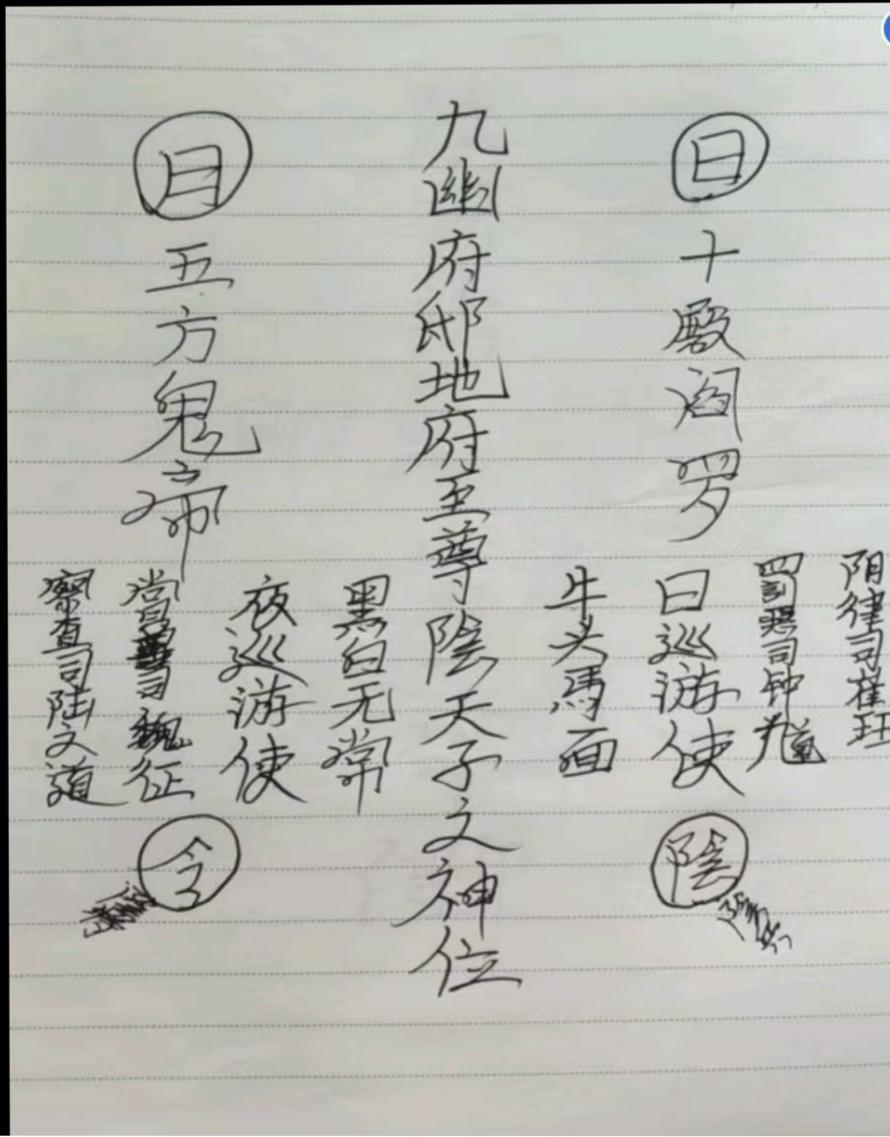 日
十殿阎罗
阴律司崔珏
罰惡司钟馗
日巡游使
牛头馬面
陰
九幽府邸地府至尊陰天子之神位
月
五方鬼帝
黑白无常
夜巡游使
賞善司魏征
察查司陆之道
令